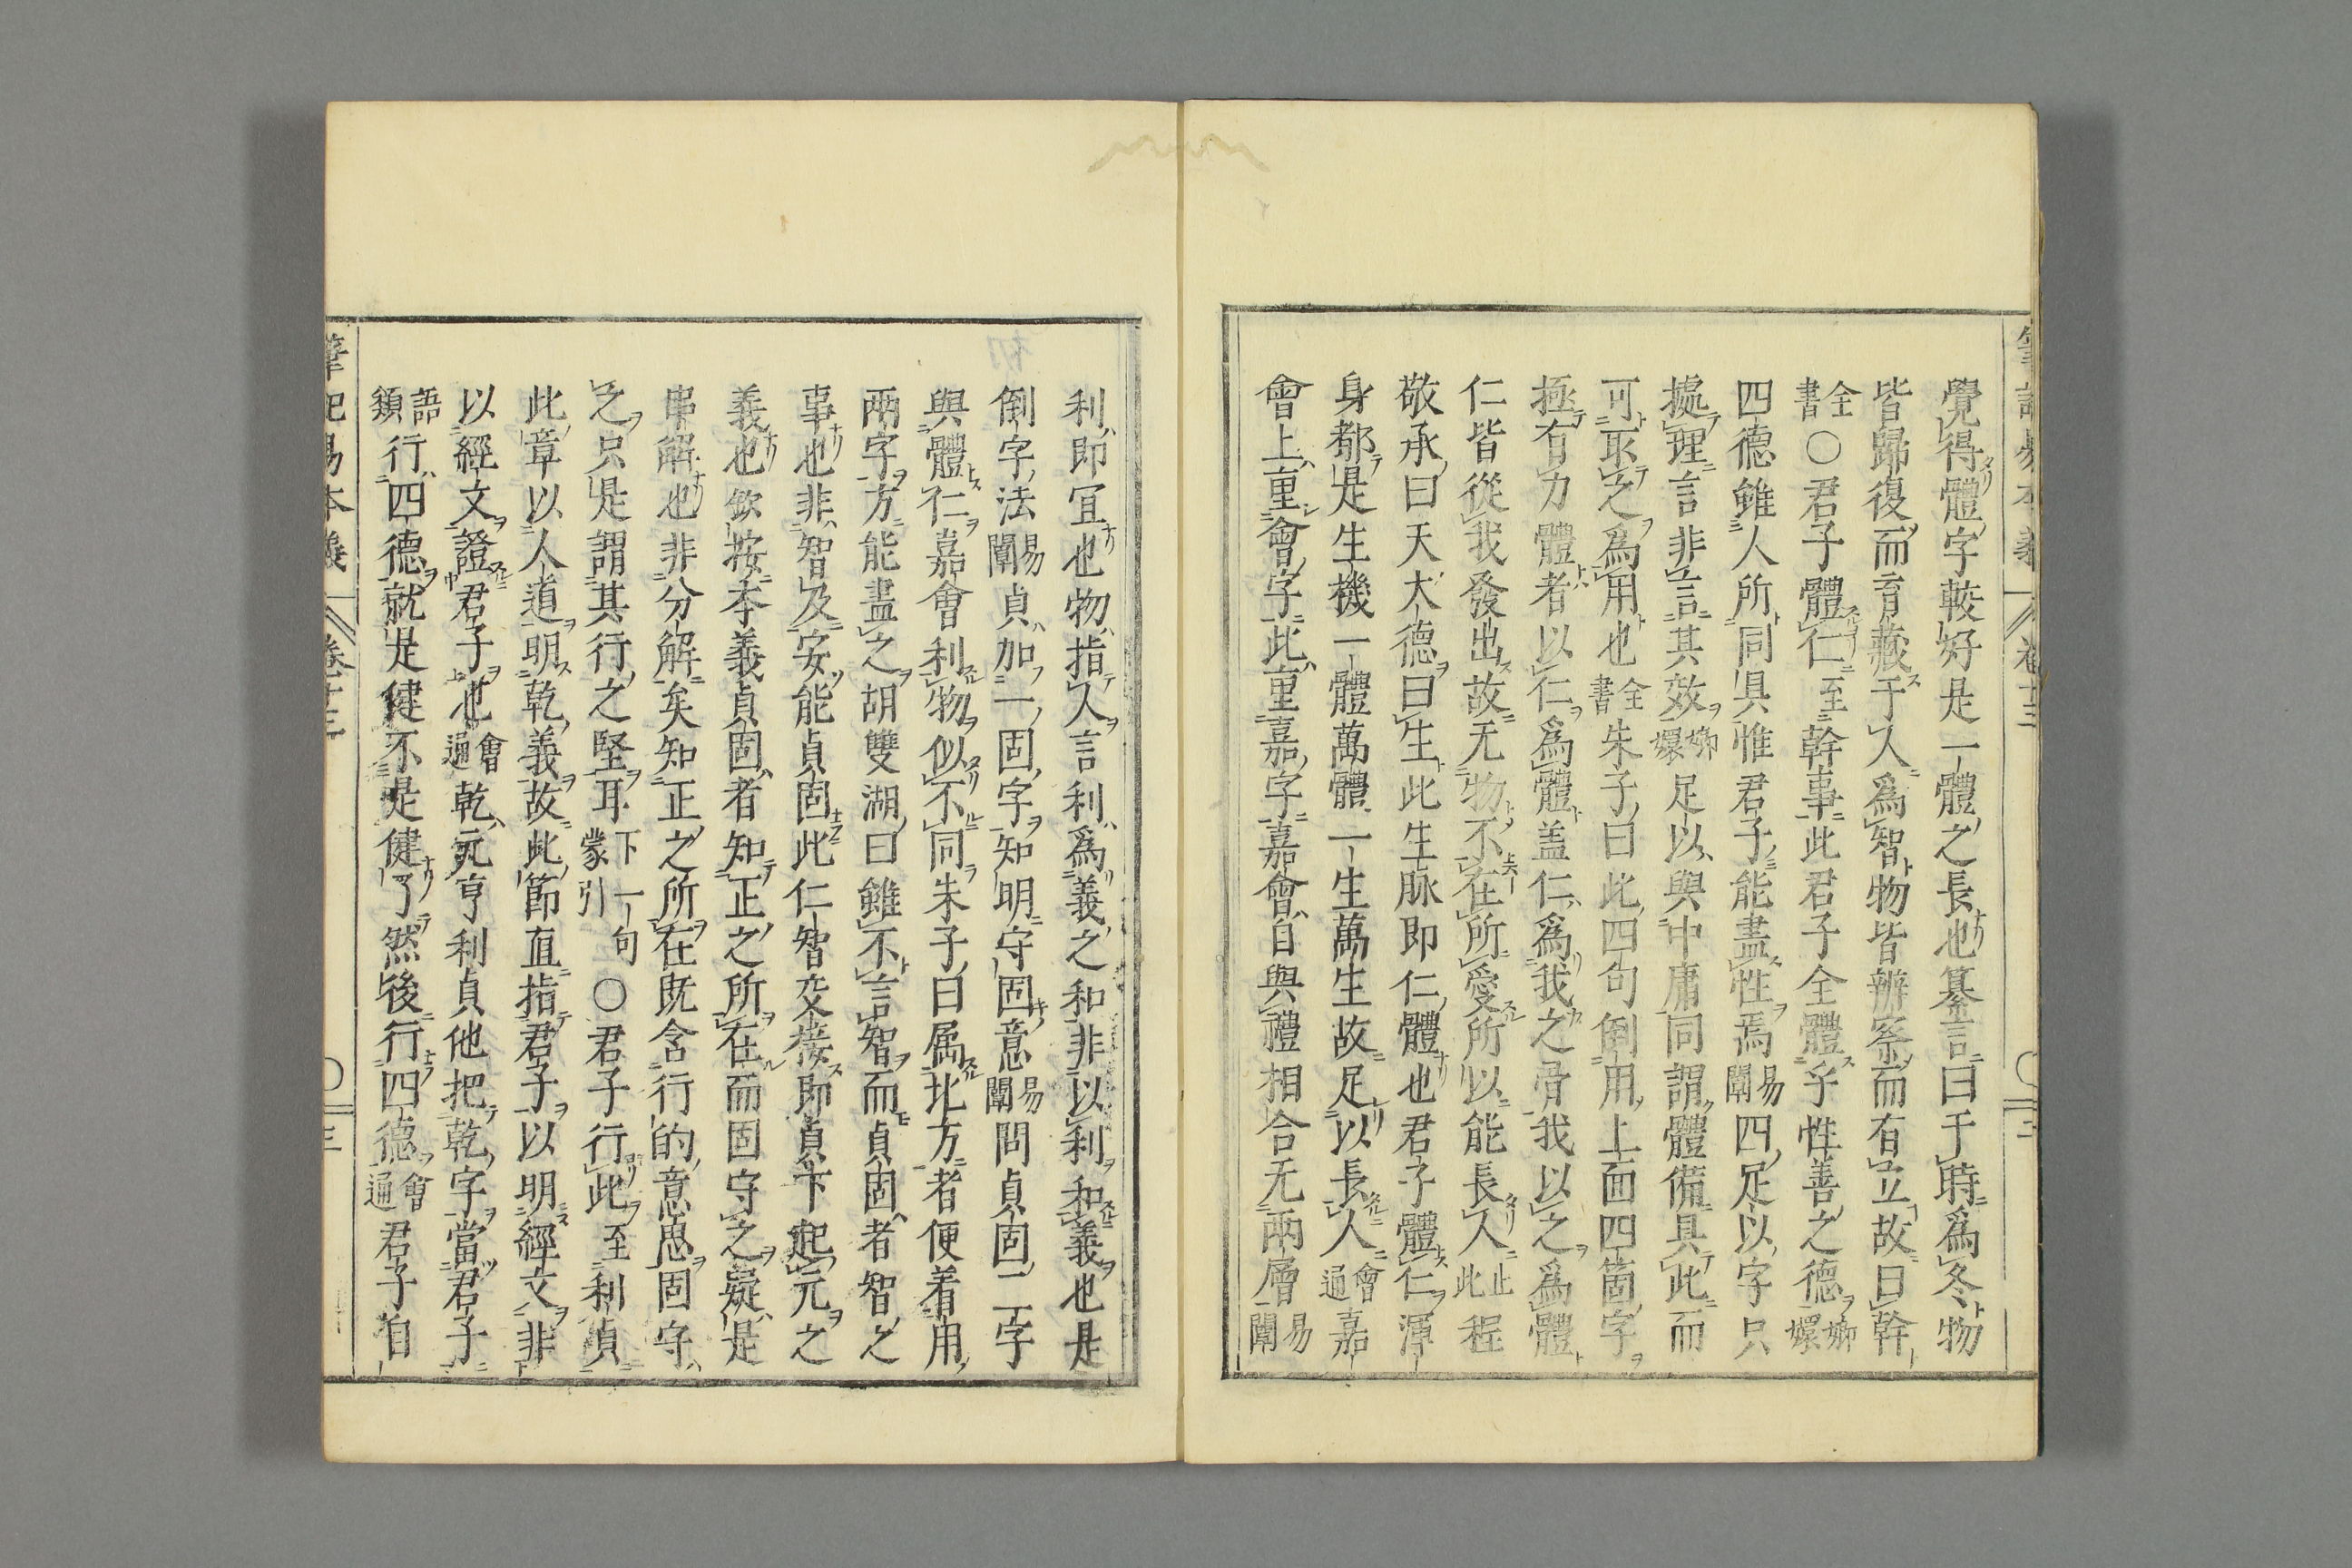 覺得體字較好是一體之長也纂言曰于時爲冬物
皆歸復而育藏于人爲智物皆辦案而有立故曰幹
全書○君子體仁至幹事此君子全體乎性善之德嫏嬛
四德雖人所同具惟君子能盡性焉易闡四足以字只
處理言非言其效嫏嬛足以與中庸同謂體備具此而
可取之爲用也全書朱子曰此四句倒用上面四箇字
極有力體者以仁爲體蓋仁爲我之骨我以之爲體
仁皆從我發出故无物不在所愛所以能長人止此程
敬承曰天大德曰生此生脉即仁體也君子體仁渾
身都是生機一體萬體一生萬生故足以長人會通嘉
會上重會字此重嘉字嘉會自與禮相合无兩層易闡
利即宜也物指人言利爲義之和非以利和義也是
倒字法易闡貞加一固字知明守固意易闡問貞固二字
與體仁嘉會利物似不同朱子曰属北方者便着用
兩字方能盡之胡雙湖曰雖不言智而貞固者智之
事也非智及安能貞固此仁智交接即貞下起元之
義也欽按本義貞固者知正之所在而固守之疑是
串解也非分解矣知正之所在既含行的意思固守
之只是謂其行之堅耳蒙引下一句○君子行此至利貞
此章以人道明乾義故此節直指君子以明經文非
以經文證君子也會通乾元亨利貞他把乾字當君子
語類行四德就是健不是健了然後行四德會通君子自